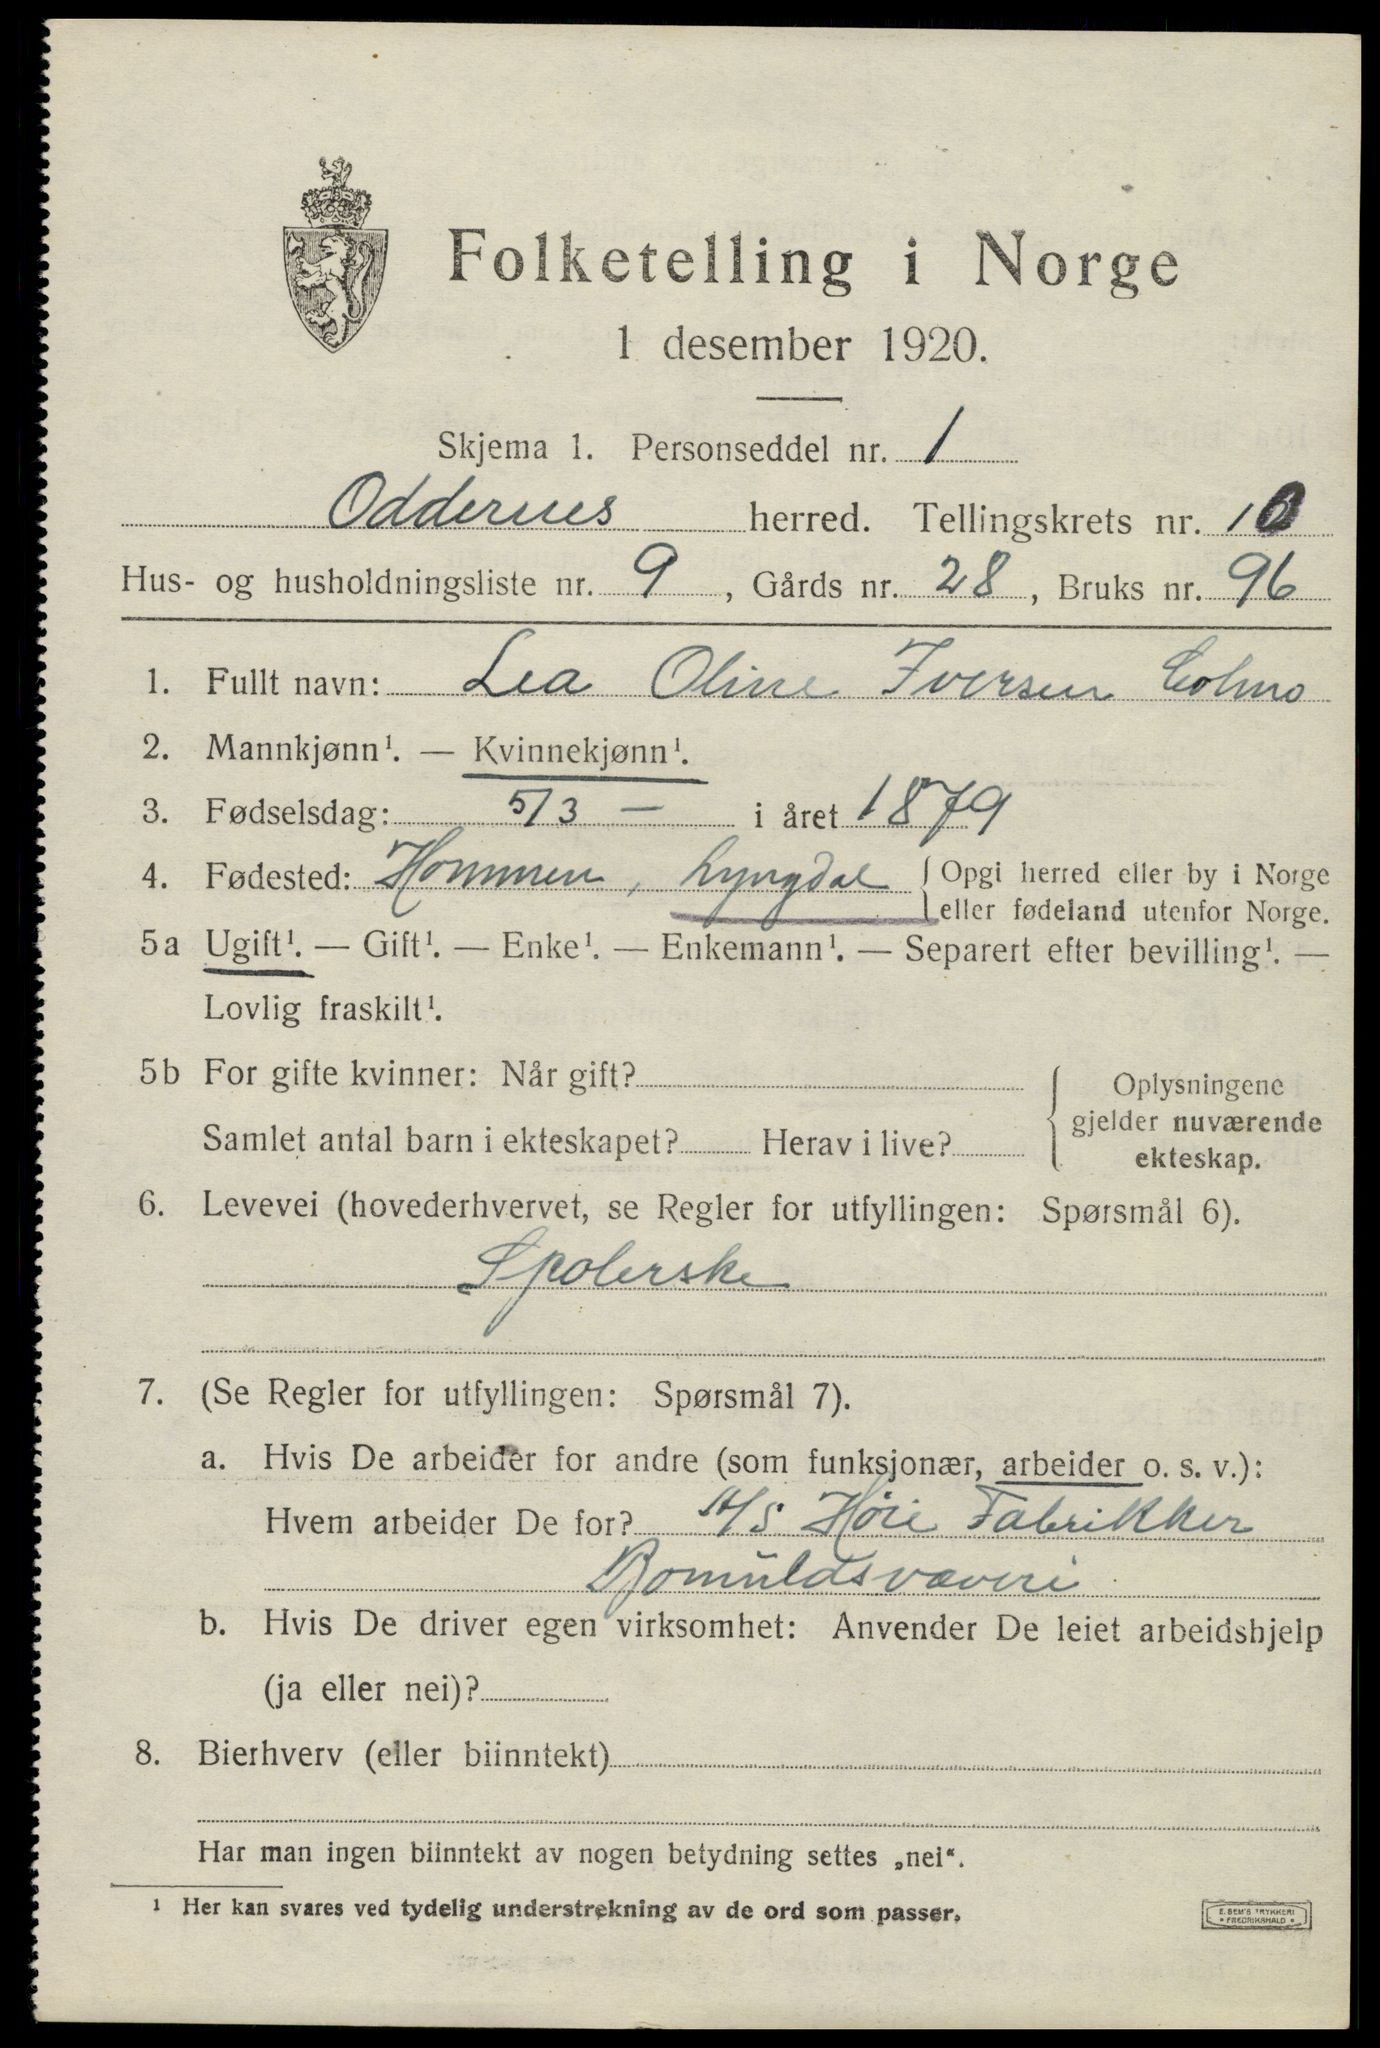 Folketelling i Norge
1 desember 1920.
Skjema 1. Personseddel nr. 1
Oddernes herred. Tellingskrets nr. 10
Hus- og husholdningsliste nr. 9, Gårds nr. 28, Bruks nr. 96
1. Fullt navn: Lea Oline Iversen
2. Mannkjønn¹. — Kvinnekjønn¹.
3. Fødselsdag: 5/3 — i året 1879
4. Fødested: Hommen, Lyngdal { Opgi herred eller by i Norge
eller fødeland utenfor Norge.
5a Ugift¹. — Gift¹. — Enke¹. — Enkemann¹. — Separert efter bevilling¹. —
Lovlig fraskilt¹.
5b For gifte kvinner: Når gift?
Samlet antal barn i ekteskapet? Herav i live?
Oplysningene
gjelder nuværende
ekteskap.
6. Levevei (hovederhvervet, se Regler for utfyllingen: Spørsmål 6).
Spolerske
7. (Se Regler for utfyllingen: Spørsmål 7).
a. Hvis De arbeider for andre (som funksjonær, arbeider o. s. v.):
Hvem arbeider De for? A/S Høie Fabrikker
Bomuldsvæveri
b. Hvis De driver egen virksomhet: Anvender De leiet arbeidshjelp
(ja eller nei)?
8. Bierhverv (eller biinntekt)
Har man ingen biinntekt av nogen betydning settes „nei“.
¹ Her kan svares ved tydelig understrekning av de ord som passer.
E. SEM'S TRYKKERI
• FREDRIKSHALD •